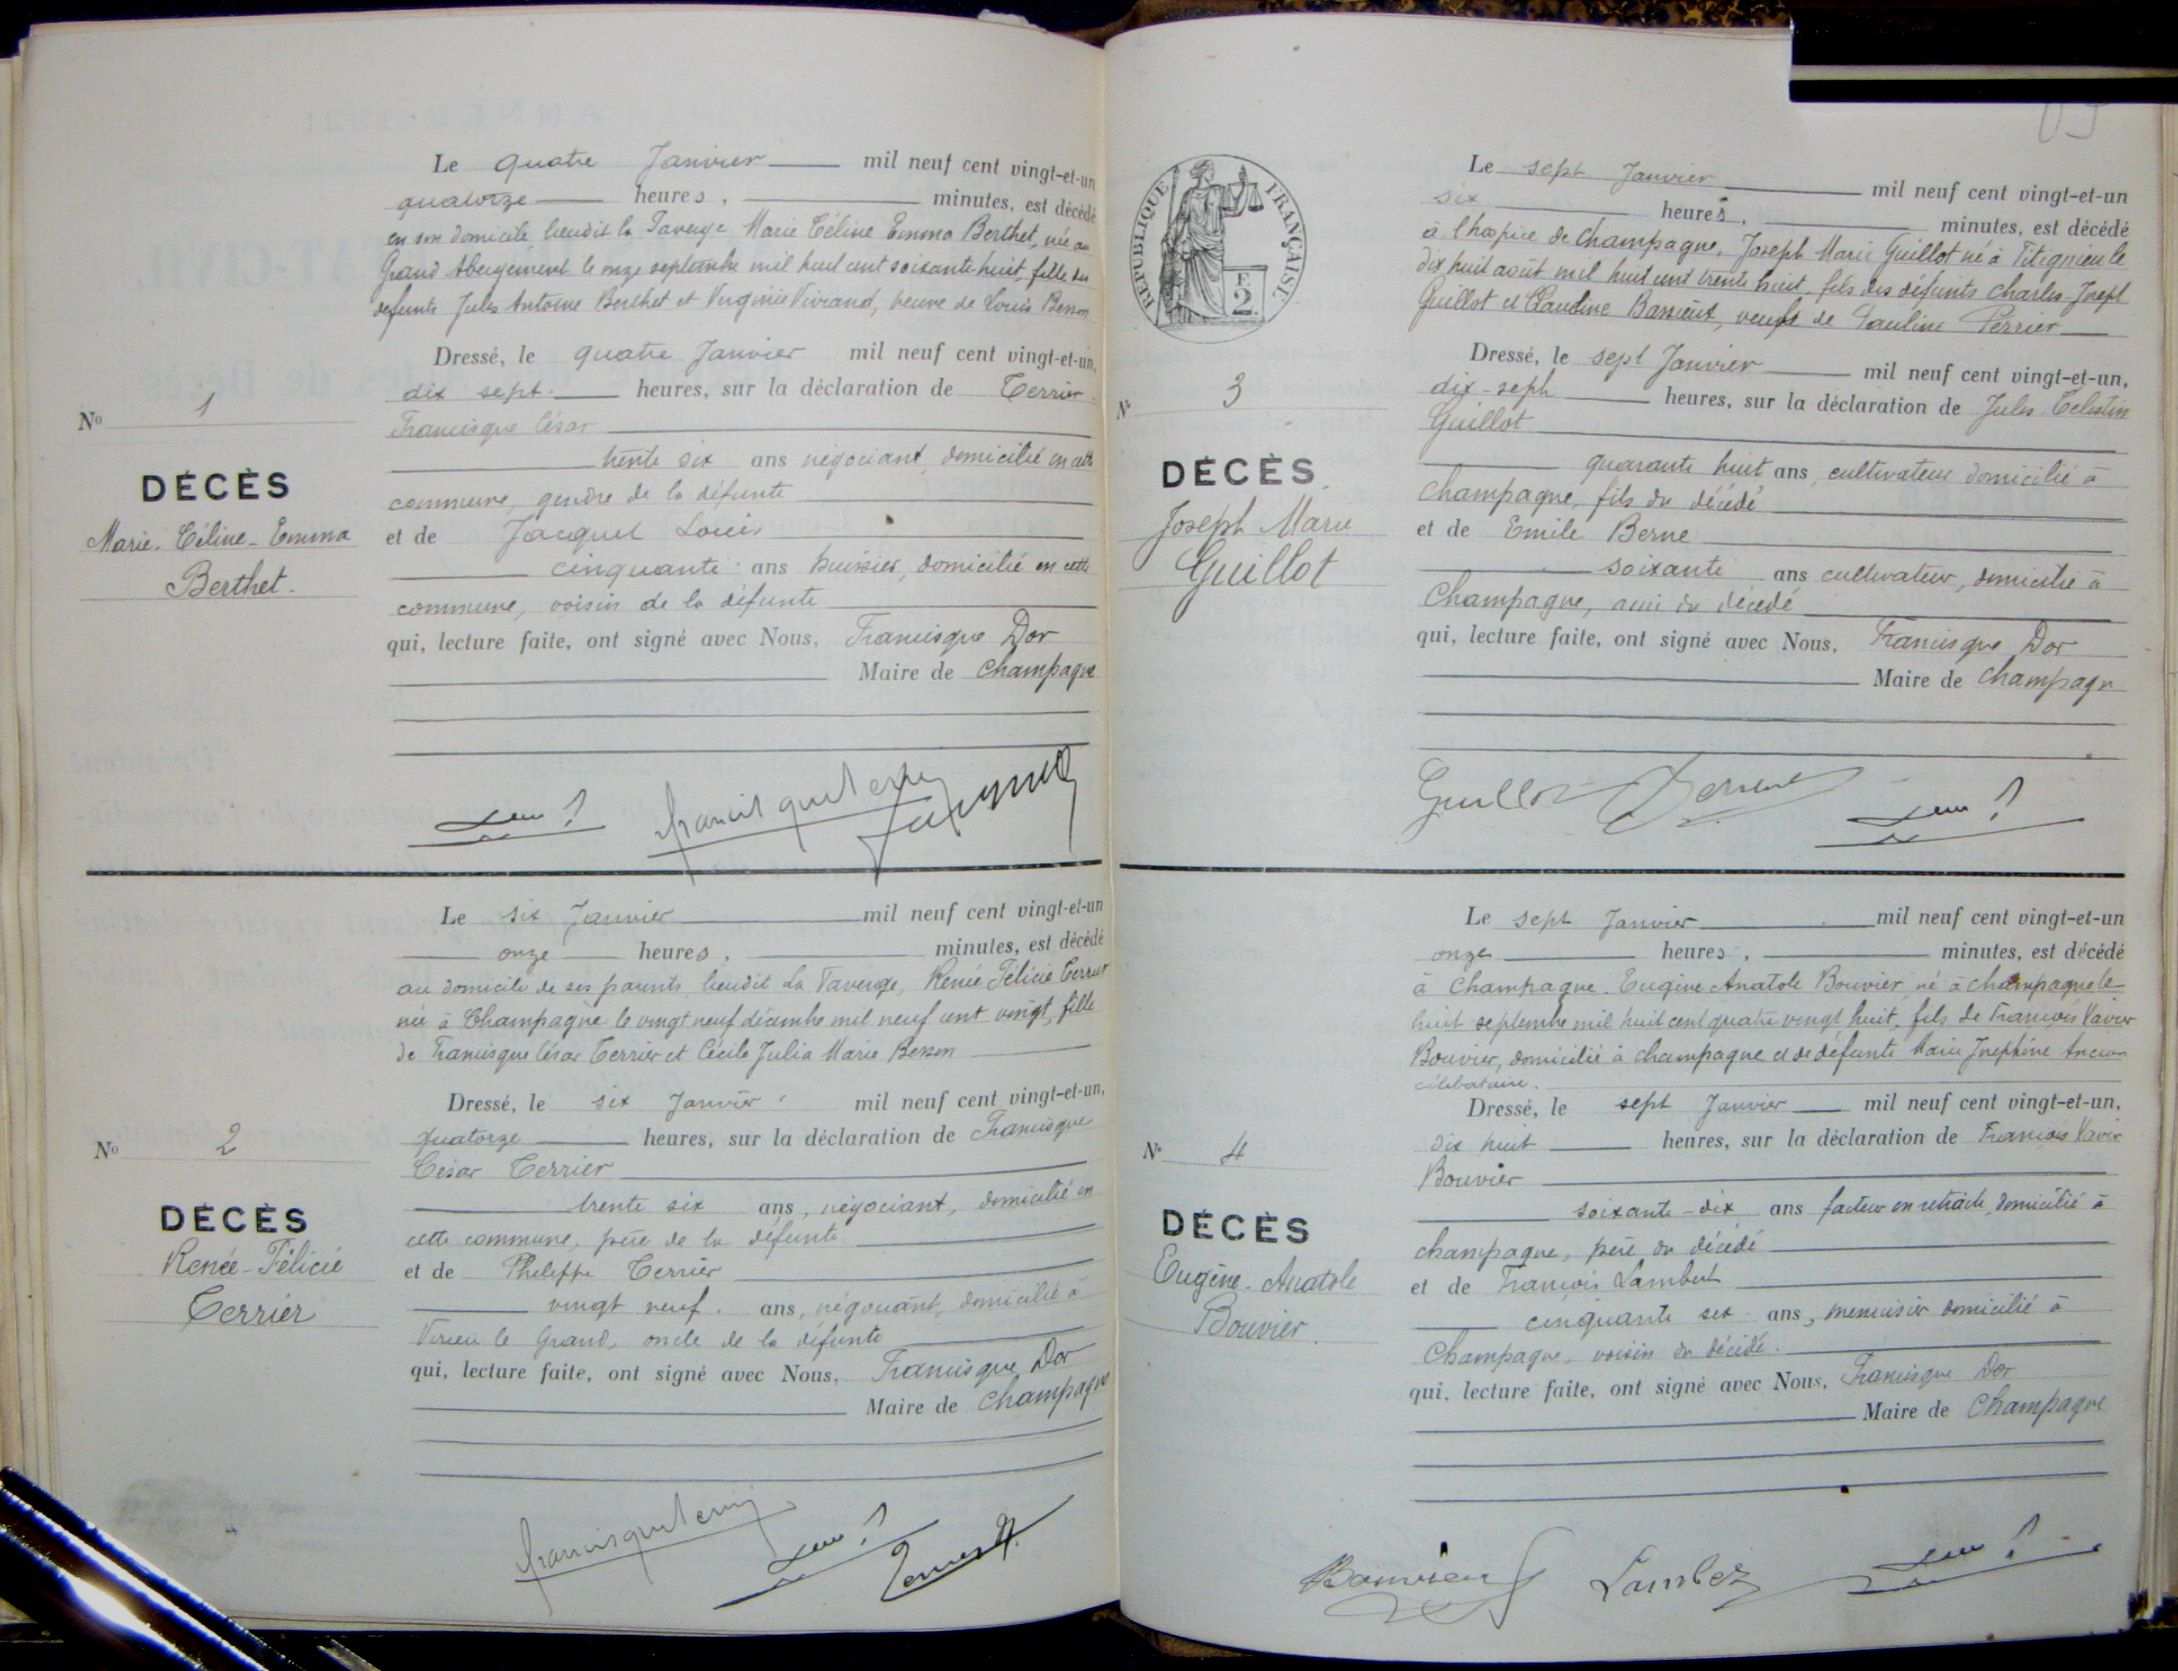 Le quatre Janvier mil neuf cent vingt-et-un
quatorze heures, minutes, est décédé
en son domicile, lieudit la Taverge Marie Céline Emma Berthet, née au
Grand Abergement le onze septembre mil huit cent soixante huit, fille des
défunts Jules Antoine Berthet et Virginie Vivrand, veuve de Louis Besson
Dressé, le quatre Janvier mil neuf cent vingt-et-un,
dix sept heures, sur la déclaration de Terrier
Francisque César
trente six ans négociant, domicilié en cette
commune, gendre de la défunte
et de Jacquet Louis
cinquante ans huissier, domicilié en cette
commune, voisin de la défunte
qui, lecture faite, ont signé avec Nous, Francisque Dor
Maire de Champagne
No 1
DÉCÈS
Marie-Céline-Emma
Berthet.
francisque terrier
Le six Janvier mil neuf cent vingt-et-un
onze heures, minutes, est décédé
au domicile de ses parents, lieudit La Taverge, Renée Félicie Terrier
née à Champagne le vingt neuf décembre mil neuf cent vingt, fille
de Francisque César Terrier et Cécile Julia Marie Besson
Dressé, le six Janvier mil neuf cent vingt-et-un,
quatorze heures, sur la déclaration de Francisque
César Terrier
trente six ans, négociant, domicilié en
cette commune, père de la défunte
et de Philippe Terrier
vingt neuf ans, négociant, domicilié à
Virieu le Grand, oncle de la défunte
qui, lecture faite, ont signé avec Nous, Francisque Dor
Maire de Champagne
No 2
DÉCÈS
Renée-Félicie
Terrier
francisque terrier
RÉPUBLIQUE FRANÇAISE
E.
2.
Le sept Janvier mil neuf cent vingt-et-un
six heures, minutes, est décédé
à l'hospice de Champagne, Joseph Marie Guillot né à Titignieu le
dix huit août mil huit cent trente huit, fils des défunts Charles-Joseph
Guillot et Claudine veuf de Pauline Perrier
Dressé, le sept Janvier mil neuf cent vingt-et-un,
dix-sept heures, sur la déclaration de Jules Célestin
Guillot
quarante huit ans, cultivateur domicilié à
Champagne, fils du décédé
et de Emile Berne
soixante ans cultivateur, domicilié à
Champagne, ami du décédé
qui, lecture faite, ont signé avec Nous, Francisque Dor
Maire de Champagne
No 3
DÉCÈS
Joseph Marie
Guillot
Guillot Berne
Le sept Janvier mil neuf cent vingt-et-un
onze heures, minutes, est décédé
à Champagne Eugène Anatole Bouvier, né à Champagne le
huit septembre mil huit cent quatre vingt huit, fils de François Xavier
Bouvier, domicilié à Champagne et de défunte Marie Joséphine
célibataire.
Dressé, le sept Janvier mil neuf cent vingt-et-un,
dix huit heures, sur la déclaration de François Xavier
Bouvier
soixante-dix ans facteur en retraite, domicilié à
Champagne, père du décédé
et de François Lambert
cinquante six ans, menuisier domicilié à
Champagne, voisin du décédé.
qui, lecture faite, ont signé avec Nous, Francisque Dor
Maire de Champagne
No 4
DÉCÈS
Eugène-Anatole
Bouvier.
Bouvier Lambert